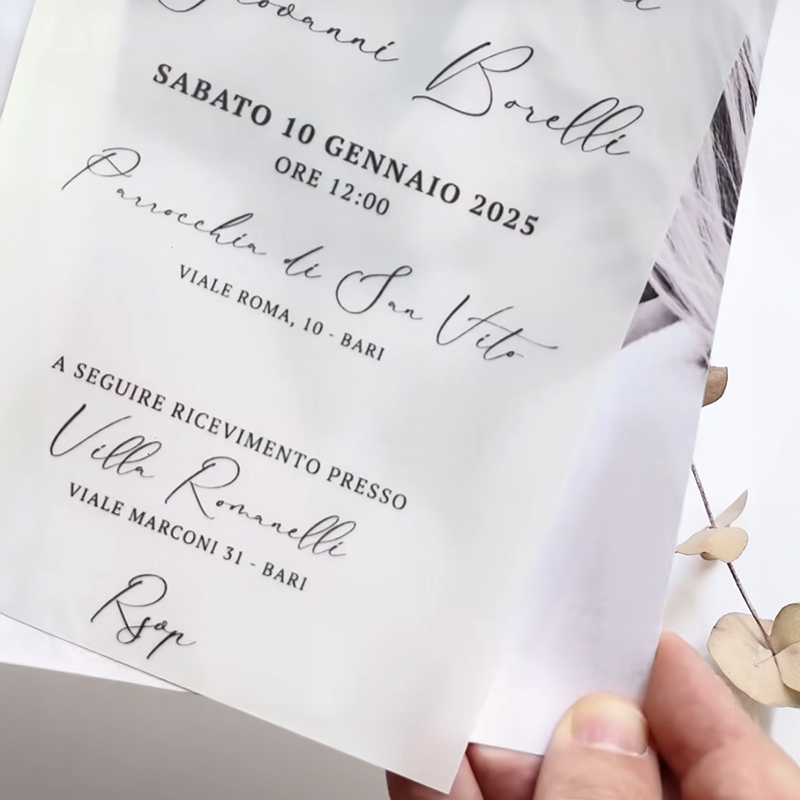 Giovanni Borelli
SABATO 10 GENNAIO 2025
ORE 12:00
Parrocchia di San Vito
VIALE ROMA, 10 - BARI
A SEGUIRE RICEVIMENTO PRESSO
Villa Romanelli
VIALE MARCONI 31 - BARI
Rsvp